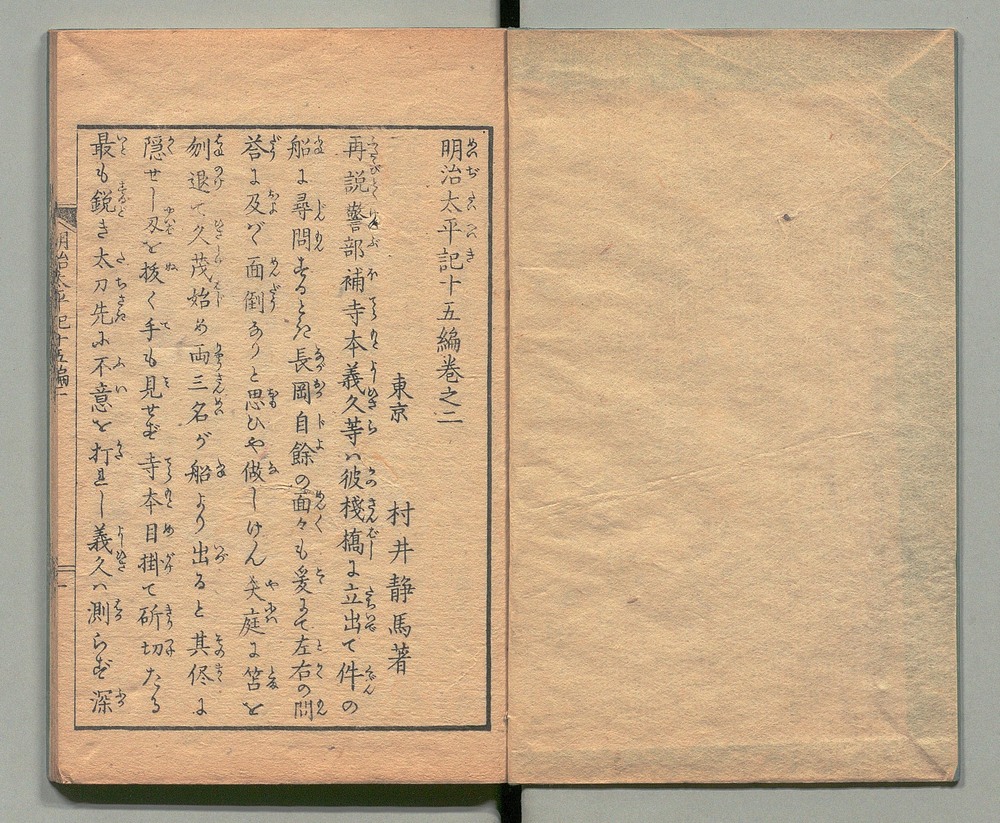 明治太平記十五編巻之二
東京 村井静馬著
再説警部補寺本義久等ハ彼棧橋に立出て件の
船に尋問するとき長岡自餘の面々も爰にて左右の問
荅に及バゞ面倒なりと思ひや做しけん矢庭に笘を
刎退て久茂始め両三名が船より出ると其侭に
隠せし刄を抜く手も見せず寺本目掛て斫切たる
最も鋭き太刀先に不意を打れし義久ハ測らず深
明治太平記十五編二
一